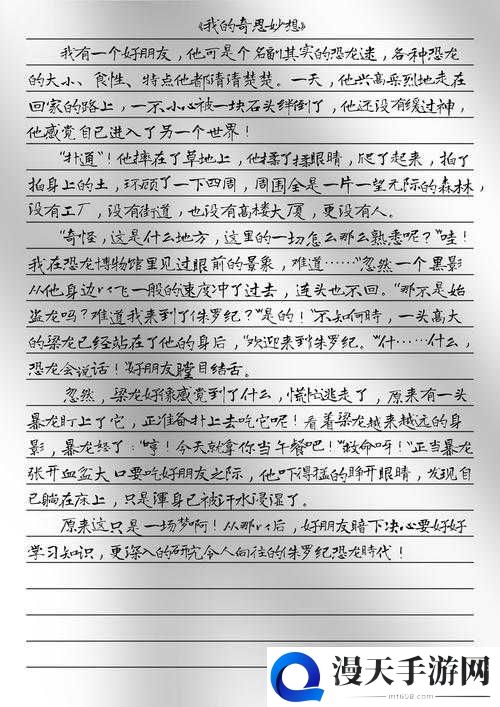 《我的奇思妙想》
我有一个好朋友，他可是个名副其实的恐龙迷，各种恐龙
的大小、食性、特点他都清清楚楚。一天，他兴高采烈地走在
回家的路上，一不小心被一块石头绊倒了，他还没有缓过神，
他感觉自己进入了另一个世界！
“扑通”！他摔在了草地上，他揉了揉眼睛，爬了起来，拍了
拍身上的土，环顾了一下四周，周围全是一片一望无际的森林，
没有工厂，没有街道，也没有高楼大厦，更没有人。
“奇怪，这是什么地方，这里的一切怎么那么熟悉呢？”哇！
我在恐龙博物馆里见过眼前的景象，难道……”忽然一个黑影
从他身边以飞一般的速度冲了过去，连头也不回。“那不是始
盗龙吗？难道我来到了侏罗纪？”“是的！”不知何時，一头高大
的梁龙已经站在了他的身后，“欢迎来到侏罗纪。”“什……什么，
恐龙会说话！”好朋友瞠目结舌。
忽然，梁龙好像感觉到了什么，慌忙逃走了，原来有一头
暴龙盯上了它，正准备扑上去吃它呢！看着梁龙越来越远的身
影，暴龙怒了：“哼！今天就拿你当午餐吧！”“救命呀！”正当暴龙
张开血盆大口要吃好朋友之际，他吓得猛的睁开眼睛，发现自
己躺在床上，只是渾身已被汗水浸湿了。
原来这只是一场梦啊！从那以后，好朋友暗下决心要好好
学习知识，更深入的研究令人向往的侏罗纪恐龙時代！
漫天手游网
mt608.com